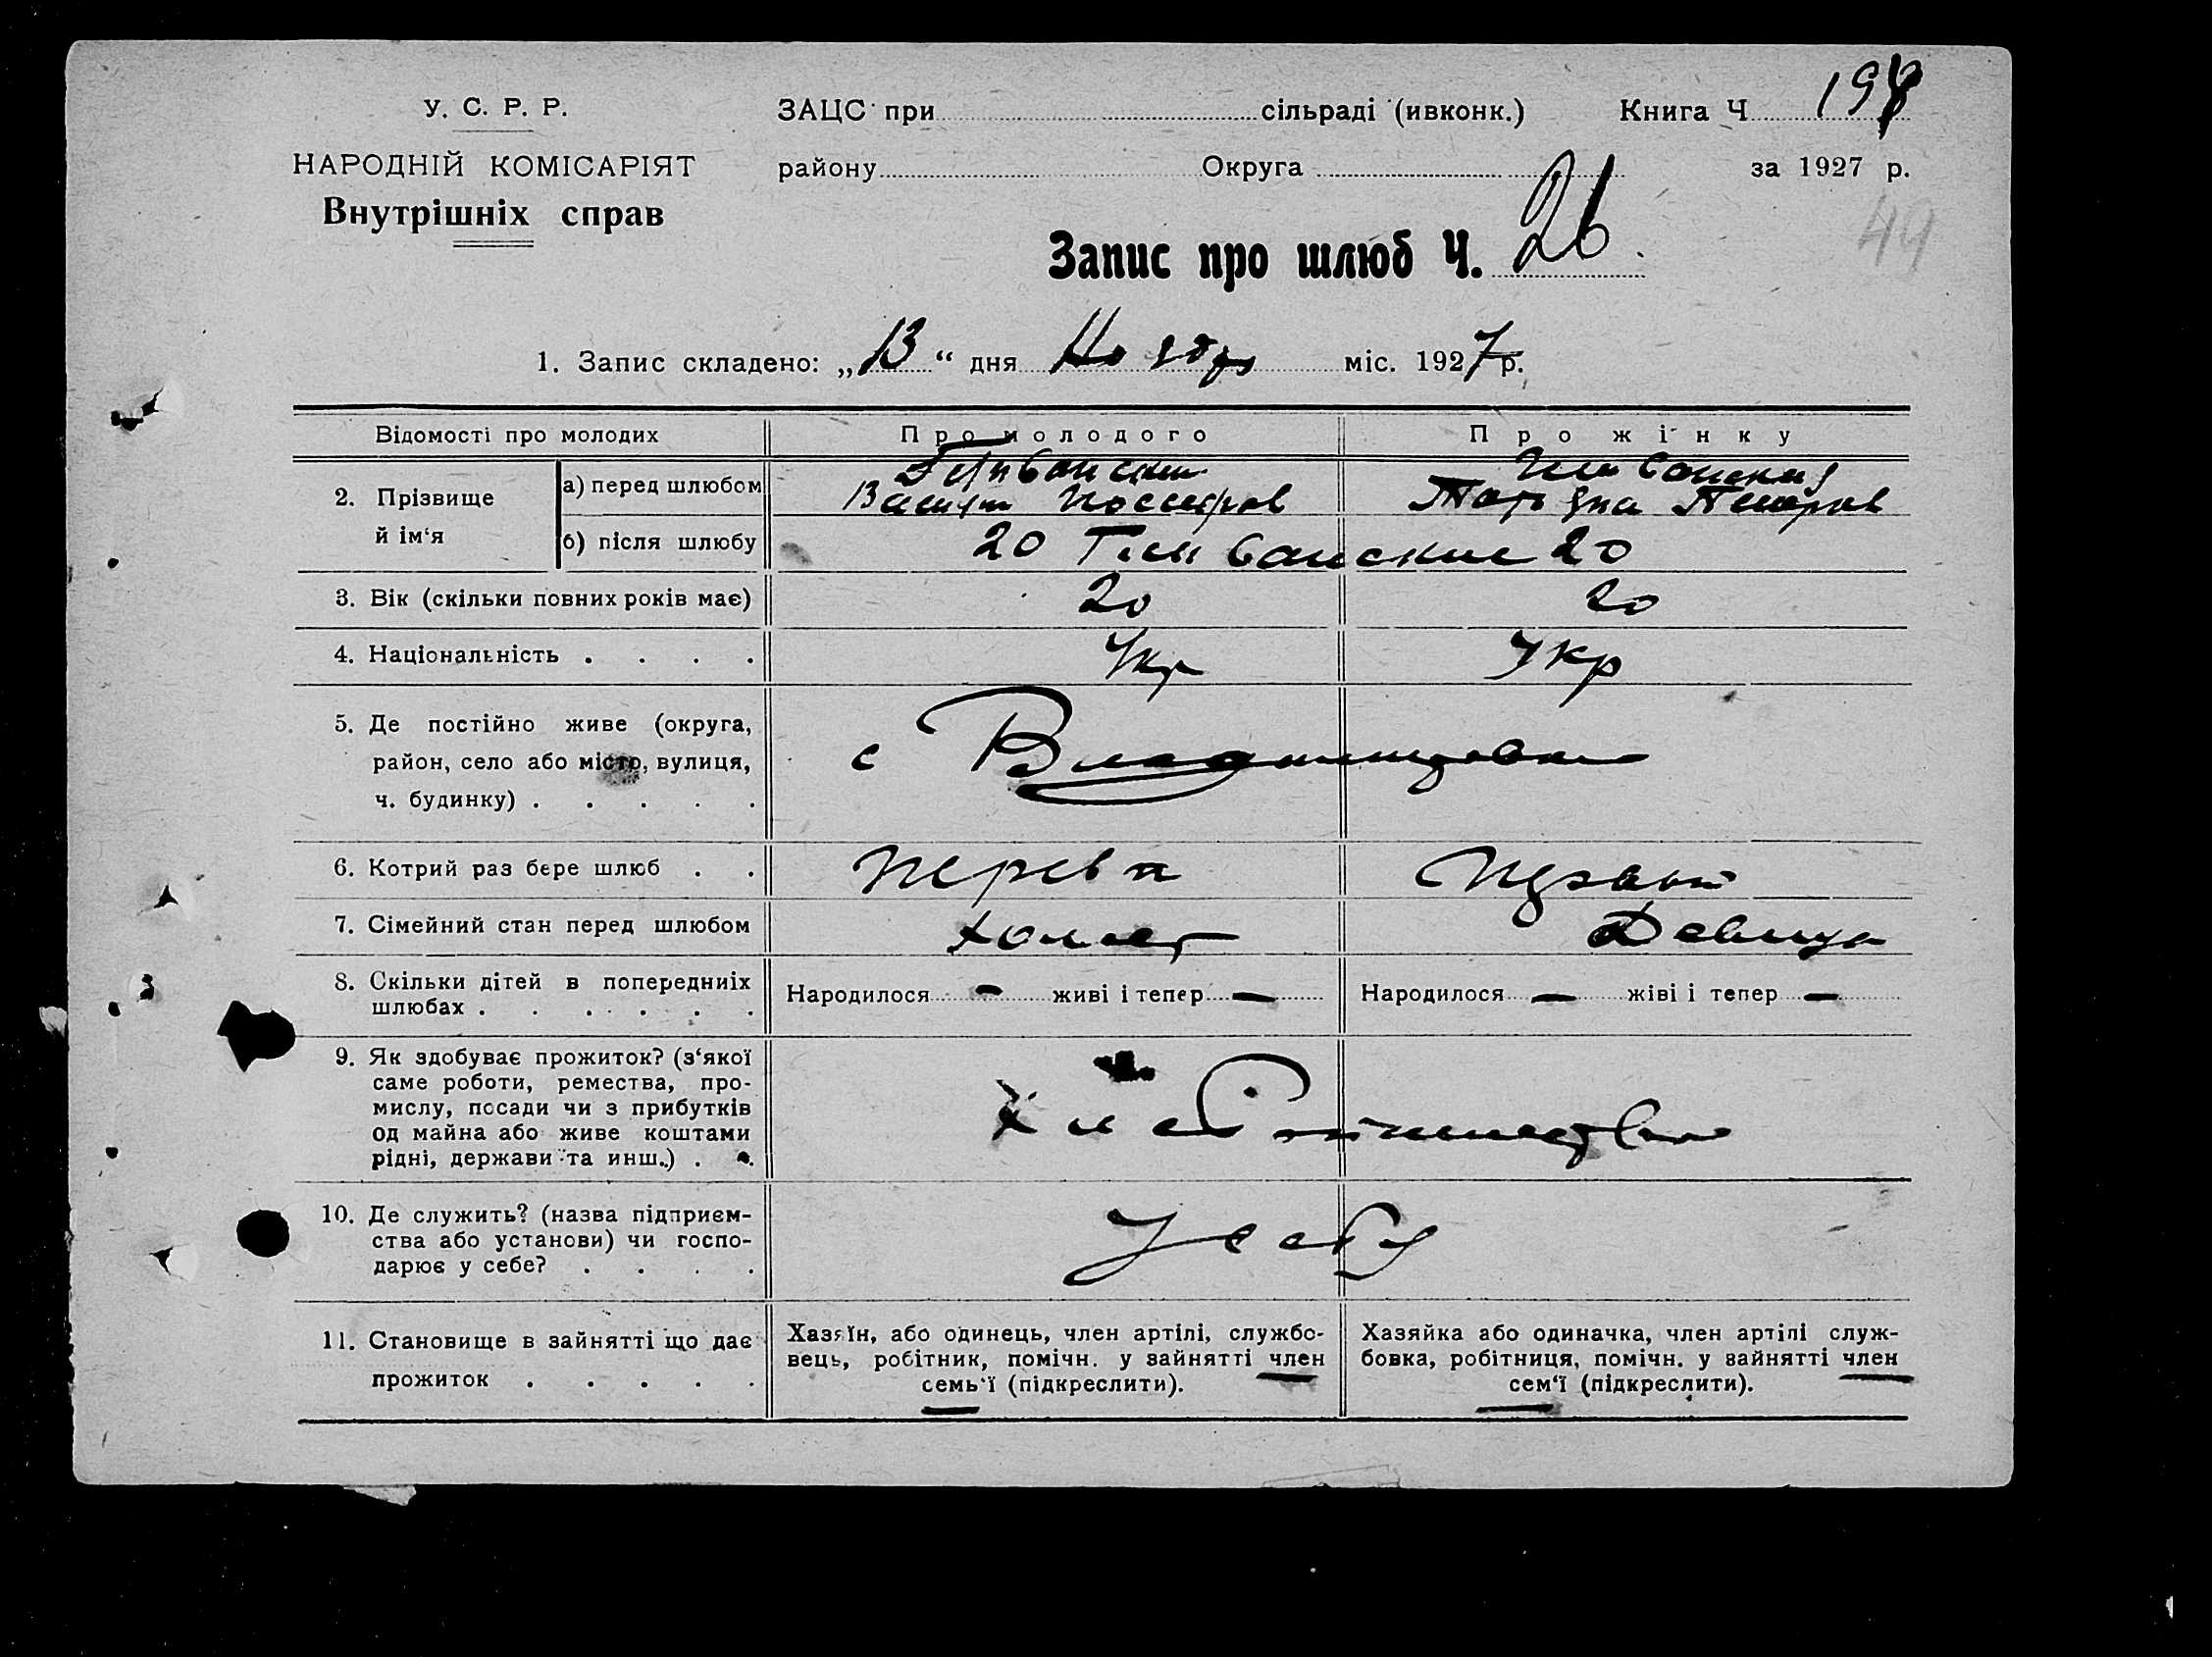 У. С. Р. Р.
НАРОДНІЙ КОМІСАРІЯТ
Внутрішніх справ
ЗАЦС при сільраді (ивконк.) Книга Ч
району Округа за 1927 р.
49
Запис про шлюб Ч. 26.
1. Запис складено: „13“ дня міс. 1927 р.
Відомості про молодих Про молодого Про жінку
2. Прізвище й ім‘я
а) перед шлюбом
б) після шлюбу 20 20
3. Вік (скільки повних років має) 20 20
4. Національність . . . . Укр Укр
5. Де постійно живе (округа,
район, село або місто, вулиця,
ч. будинку) . . . . . с
6. Котрий раз бере шлюб . .
7. Сімейний стан перед шлюбом Холост Девица
8. Скільки дітей в попередниіх
шлюбах . . . . . . Народилося – живі і тепер – Народилося – жіві і тепер –
9. Як здобуває прожиток? (з‘якої
саме роботи, ремества, про-
мислу, посади чи з прибутків
од майна або живе коштами
рідні, держави та инш.) . .
10. Де служить? (назва підприєм-
ства або установи) чи госпо-
дарює у себе? . . . . У себя
11. Становище в зайнятті що дає
прожиток . . . . .
Хазяїн, або одинець, член артілі, службо-
вець, робітник, помічн. у зайнятті член
семь‘ї (підкреслити).
Хазяйка або одиначка, член артілі служ-
бовка, робітниця, помічн. у зайнятті член
сем‘ї (підкреслити).